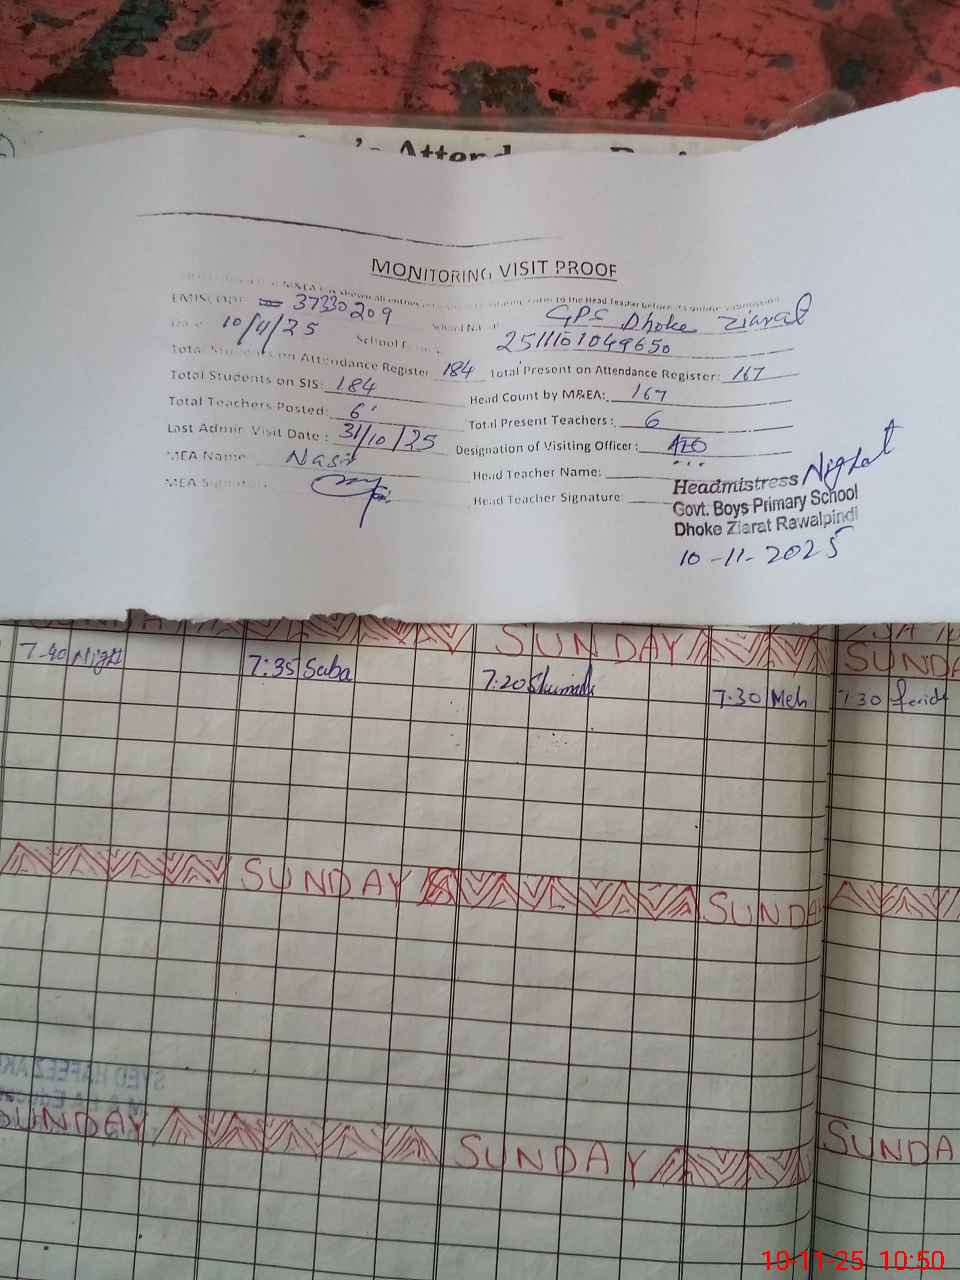 MONITORING VISIT PROOF
EMIS Code 37330209 School Name GPS Dhoke Ziarat
Date 10/11/25 School 2511101049650
Total Students on Attendance Register 184 Total Present on Attendance Register: 167
Total Students on SIS: 184 Head Count by M&EA: 167
Total Teachers Posted: 6 Total Present Teachers: 6
Last Admin Visit Date: 31/10/25 Designation of Visiting Officer: AEO
MEA Name Nasir Head Teacher Name:
MEA Signature Head Teacher Signature:
Headmistress Nighat
Govt. Boys Primary School
Dhoke Ziarat Rawalpindi
10-11-2025
SUNDAY SUNDA
7-40 Night 7:35 Saba 7:20 7.30 Meh 7 30
SUNDAY SUNDA
SUNDAY SUNDAY SUNDA
10-11-25 10:50